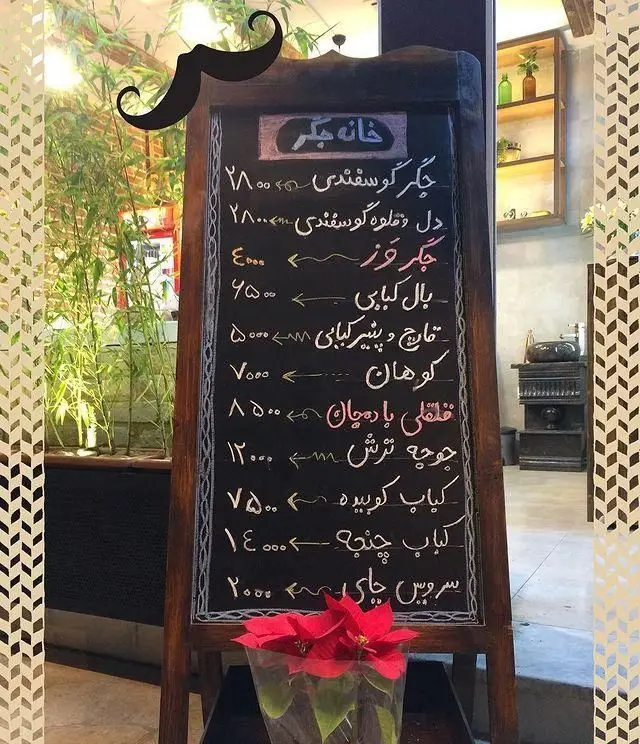 خانه جگر
جگر گوسفندی ۲۸۰۰
دل و قلوه گوسفندی ۲۸۰۰
جگر وَز ۴۰۰۰
بال کبابی ۶۵۰۰
قارچ و پنیر کبابی ۵۰۰۰
کوهان ۷۰۰۰
قلقلی بادمجان ۸۵۰۰
جوجه ترش ۱۲۰۰۰
کباب کوبیده ۷۵۰۰
کباب چنجه ۱۴۰۰۰
سرویس چای ۲۰۰۰